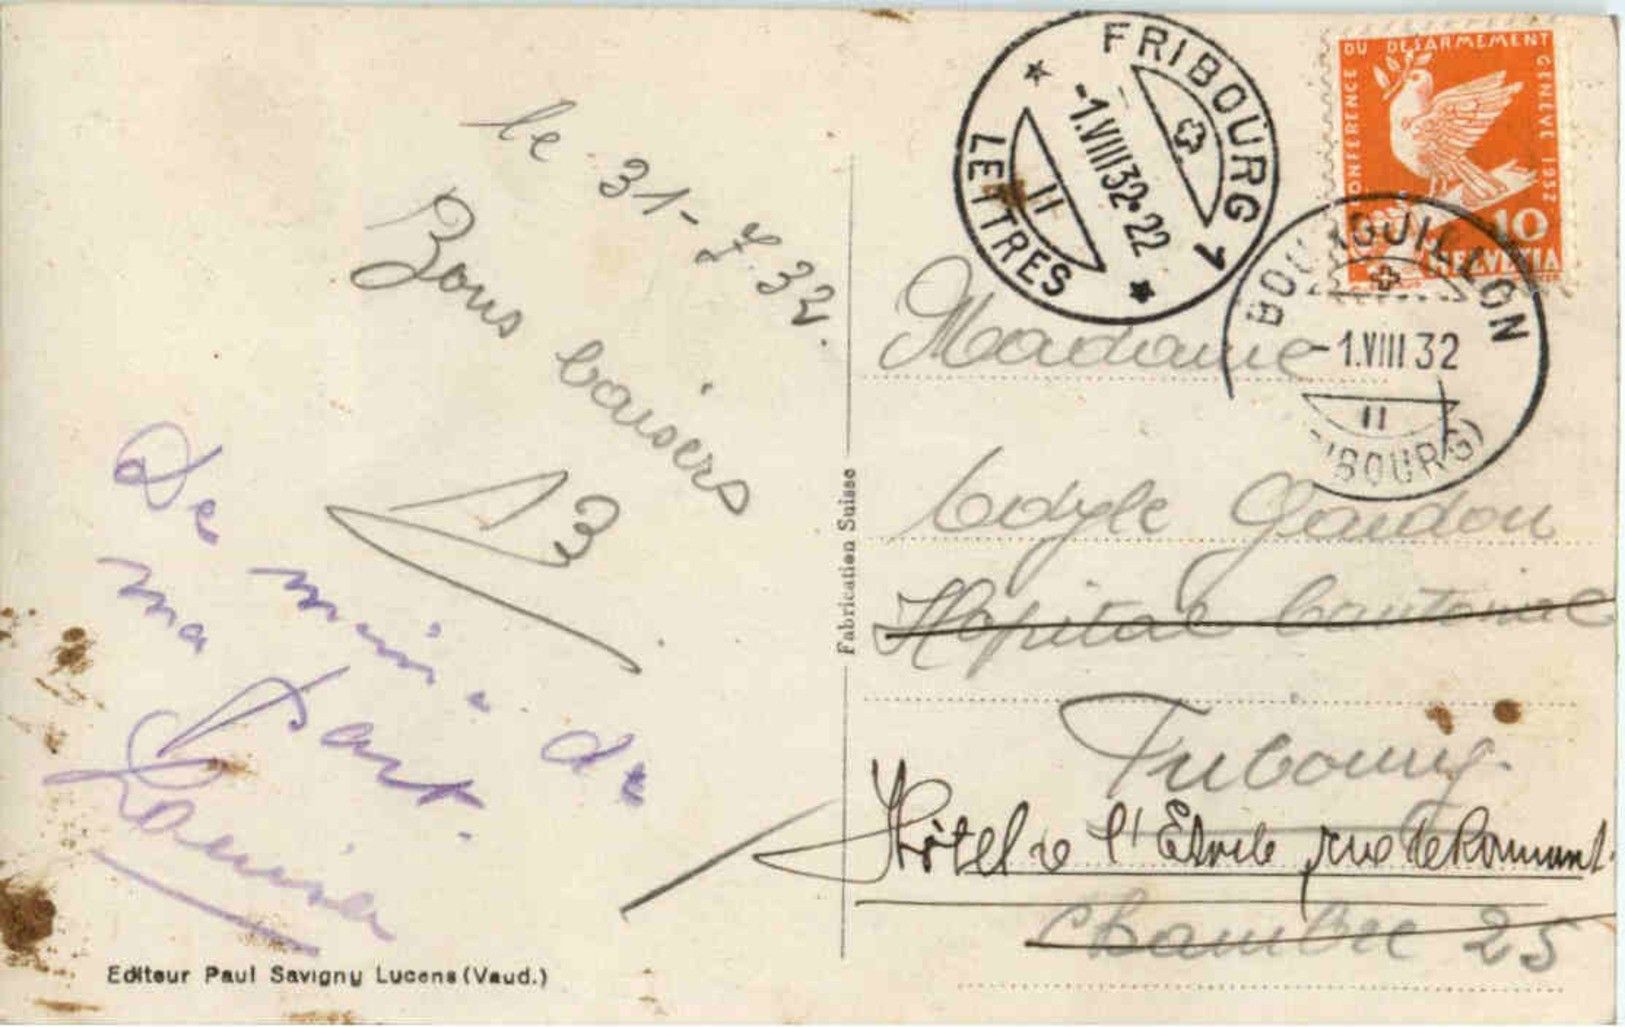 le 31-7.32.
Bons baisers
De même de
ma part.
Louisa
Editeur Paul Savigny Lucens (Vaud.)
Fabrication Suisse
FRIBOURG 1
-1.VIII 32•22
II
LETTRES
CONFERENCE DU DESARMEMENT GENEVE 1932
10
HELVETIA
BOURGUILLON
-1.VIII 32
II
IBOURG)
Madame
Gendou
Hopital Cantonal
Fribourg.
Hôtel de l'Etoile rue de Romont.
Chambre 25